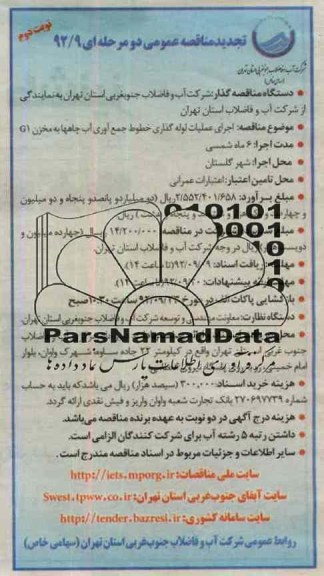 نوبت دوم
تجدید مناقصه عمومی دو مرحله ای ۹۲/۹
شرکت آب و فاضلاب جنوبغربی استان تهران
(سهامی خاص)
● دستگاه مناقصه گذار: شرکت آب و فاضلاب جنوبغربی استان تهران به نمایندگی
از شرکت آب و فاضلاب استان تهران
● موضوع مناقصه: اجرای عملیات لوله گذاری خطوط جمع آوری آب چاهها به مخزن G1
● مدت اجرا: ۶ ماه شمسی
● محل اجرا: شهر گلستان
● محل تامین اعتبار: اعتبارات عمرانی
● مبلغ برآورد: ۲/۵۵۲/۴۰۱/۶۵۸ ریال (دو میلیارد و پانصد و پنجاه و دو میلیون
و چهارصد و پنجاه و ریال
در مناقصه: ۱۴/۲۰۰/۰۰۰ ریال (چهارده میلیون و
دویست ریال در وجه شرکت آب و فاضلاب استان تهران
دریافت اسناد: ۹۲/۰۹/۰۹ (تا ساعت ۱۴).
پیشنهادات: (تا ساعت ۱۴).
بازگشایی پاکات ساعت ۱۰:۳۰ صبح
● دستگاه نظارت: معاونت مهندسی و توسعه شرکت آب و فاضلاب جنوبغربی استان تهران.
ParsNamadData
پایگاه اطلاعات پارس نماد داده ها
جنوب غربی استان تهران واقع در کیلومتر ۲۲ جاده ساوه، شهرک واوان، بلوار
امام خمینی
● هزینه خرید اسناد: ۳۰۰/۰۰۰ (سیصد هزار) ریال می باشد که باید به حساب
شماره ۲۷۰۶۹۷۷۳۹ بانک تجارت شعبه واوان واریز و فیش نقدی ارائه گردد.
● هزینه درج آگهی در دو نوبت به عهده برنده مناقصه می باشد.
● داشتن رتبه ۵ رشته آب برای شرکت کنندگان الزامی است.
● سایر اطلاعات و جزئیات مربوط در اسناد مناقصه مندرج است.
سایت ملی مناقصات: http://iets.mporg.ir
سایت آبفای جنوب غربی استان تهران: Swest.tpww.co.ir
سایت سامانه کشوری: http://tender.bazresi.ir
روابط عمومی شرکت آب و فاضلاب جنوب غربی استان تهران (سهامی خاص)